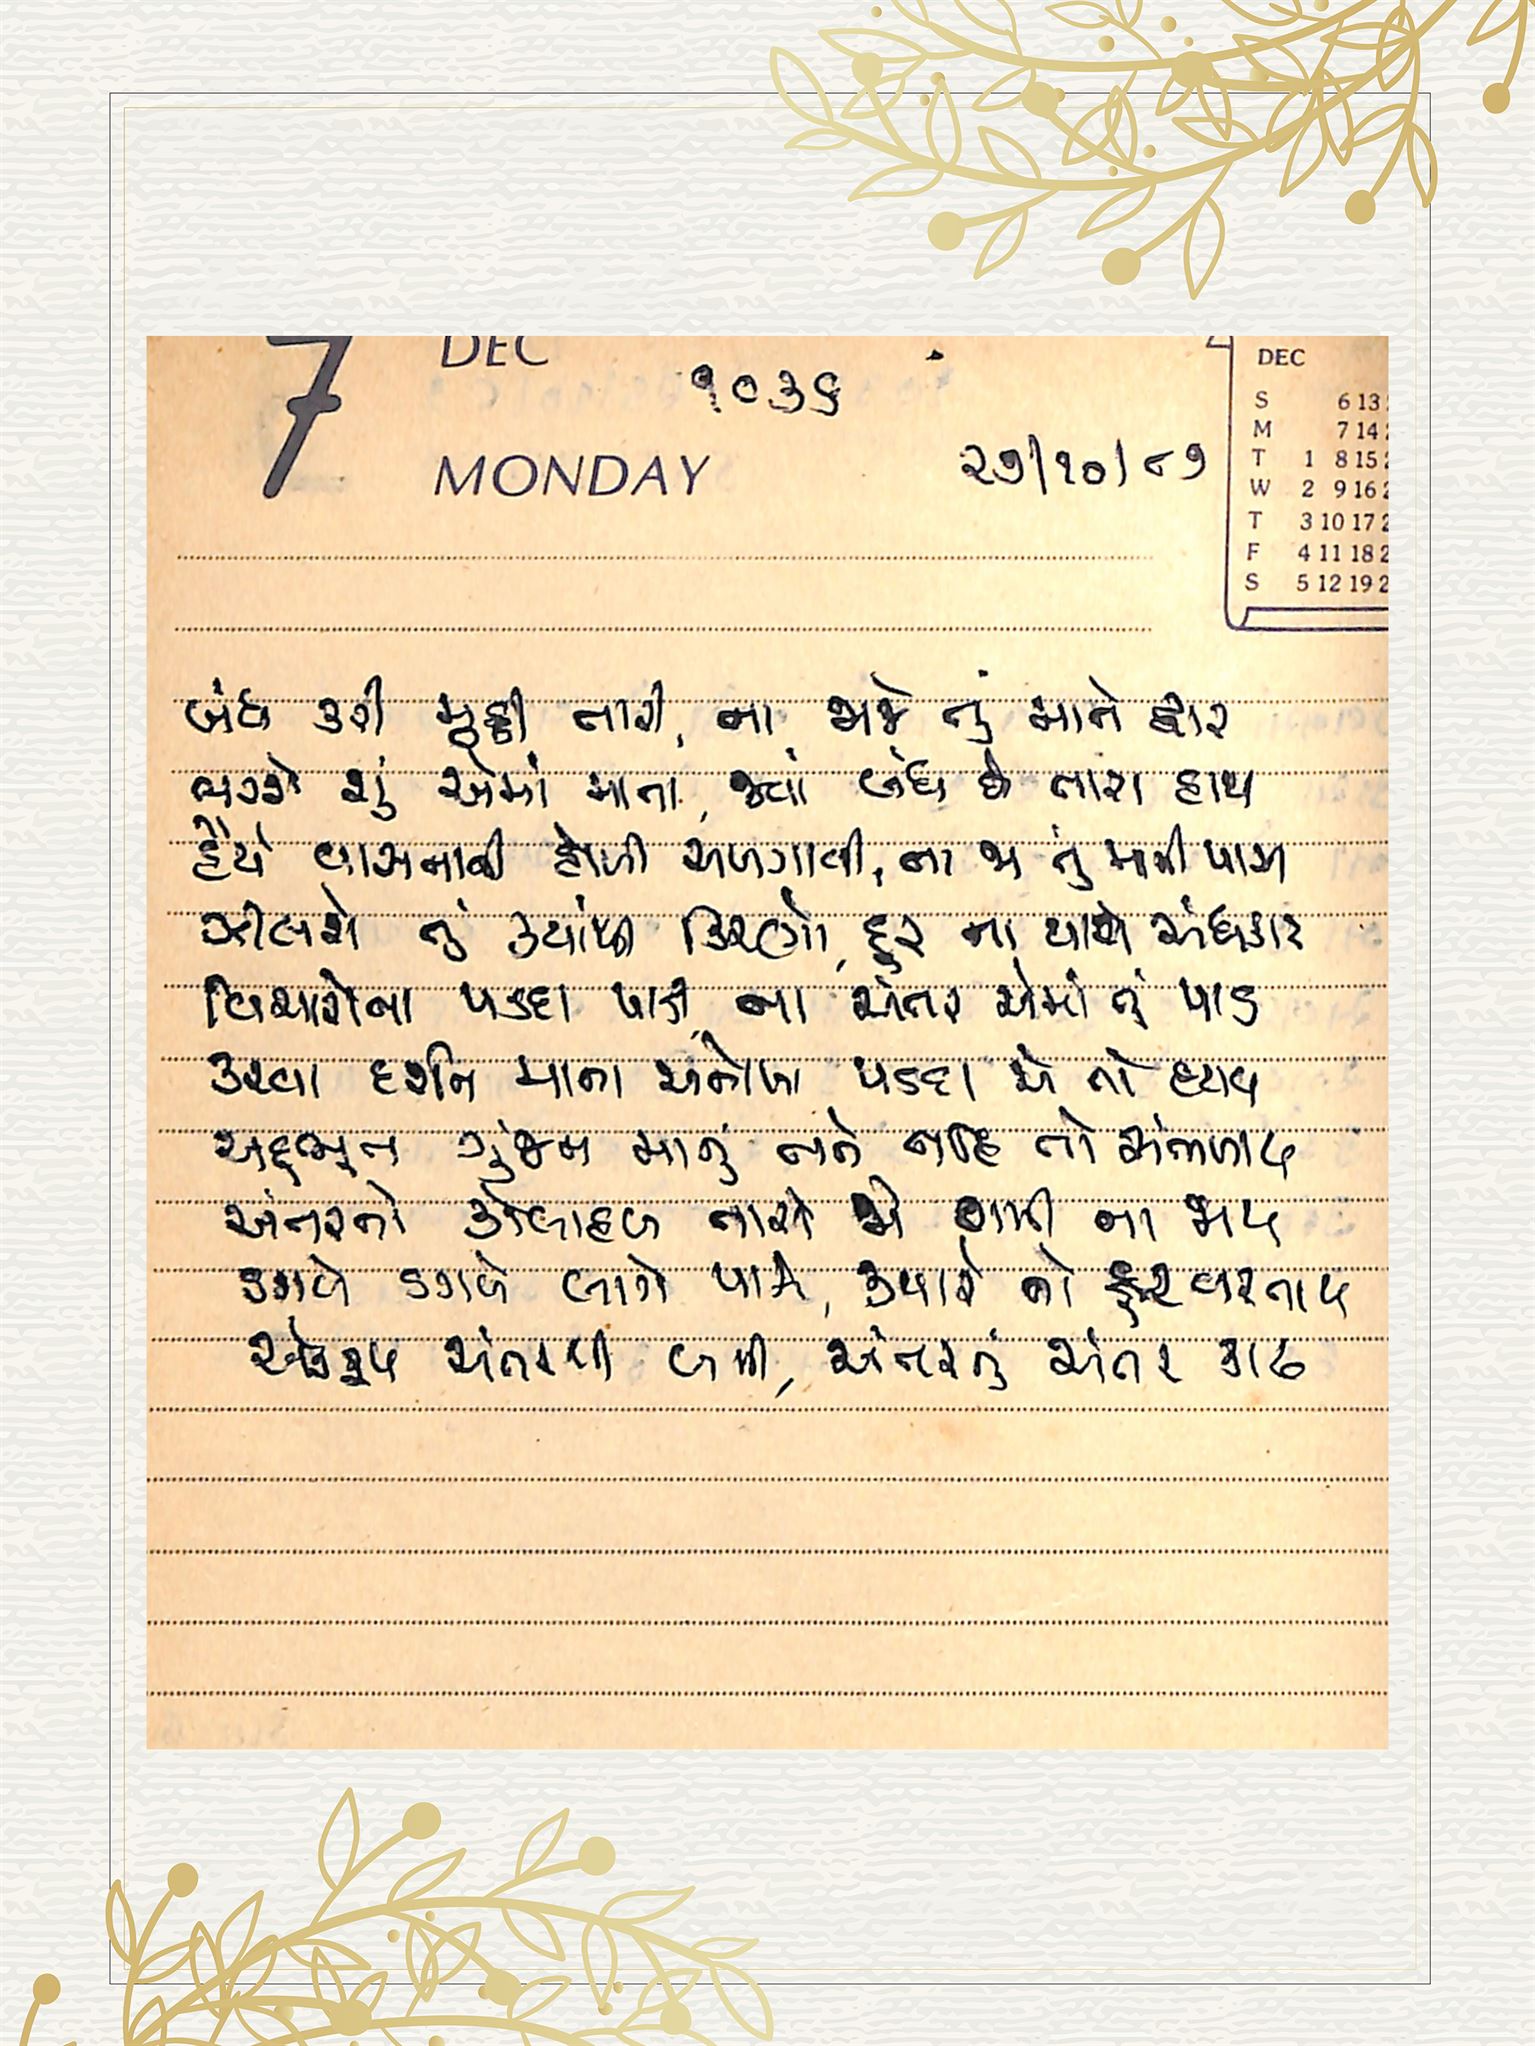 7 DEC
૧૦૩૬
MONDAY
૨૭/૧૦/૮૭
DEC
S 6 13
M 7 14
T 1 8 15
W 2 9 16
T 3 10 17 2
F 4 11 18 2
S 5 12 19 2
બંધ કરી મૂઠ્ઠી તારી, ના જાજે તું માને દ્વાર
ભરશે શું એમાં માતા, જ્યાં બંધ છે તારા હાથ
હૈયે વાસનાની હોળી સળગાવી, ના જા તું માની પાસ
ઝીલશે તું ક્યાંથી કિરણો, દૂર ના થાશે અંધકાર
વિચારોના પડદા પાડી, ના અંતર એમાં તું પાડ
કરવા દર્શન માના અનોખા પડદા એ તો હટાવ
અદ્ભૂત ગુંજન માનું તને નહિ તો સંભળાય
અંતરનો કોલાહલ તારો જો શમી ના જાય
ડગલે ડગલે લાગે પાસે, ક્યારે તો દૂર વરતાય
એકરૂપ અંતરથી બની, અંતરનું અંતર કાઢ